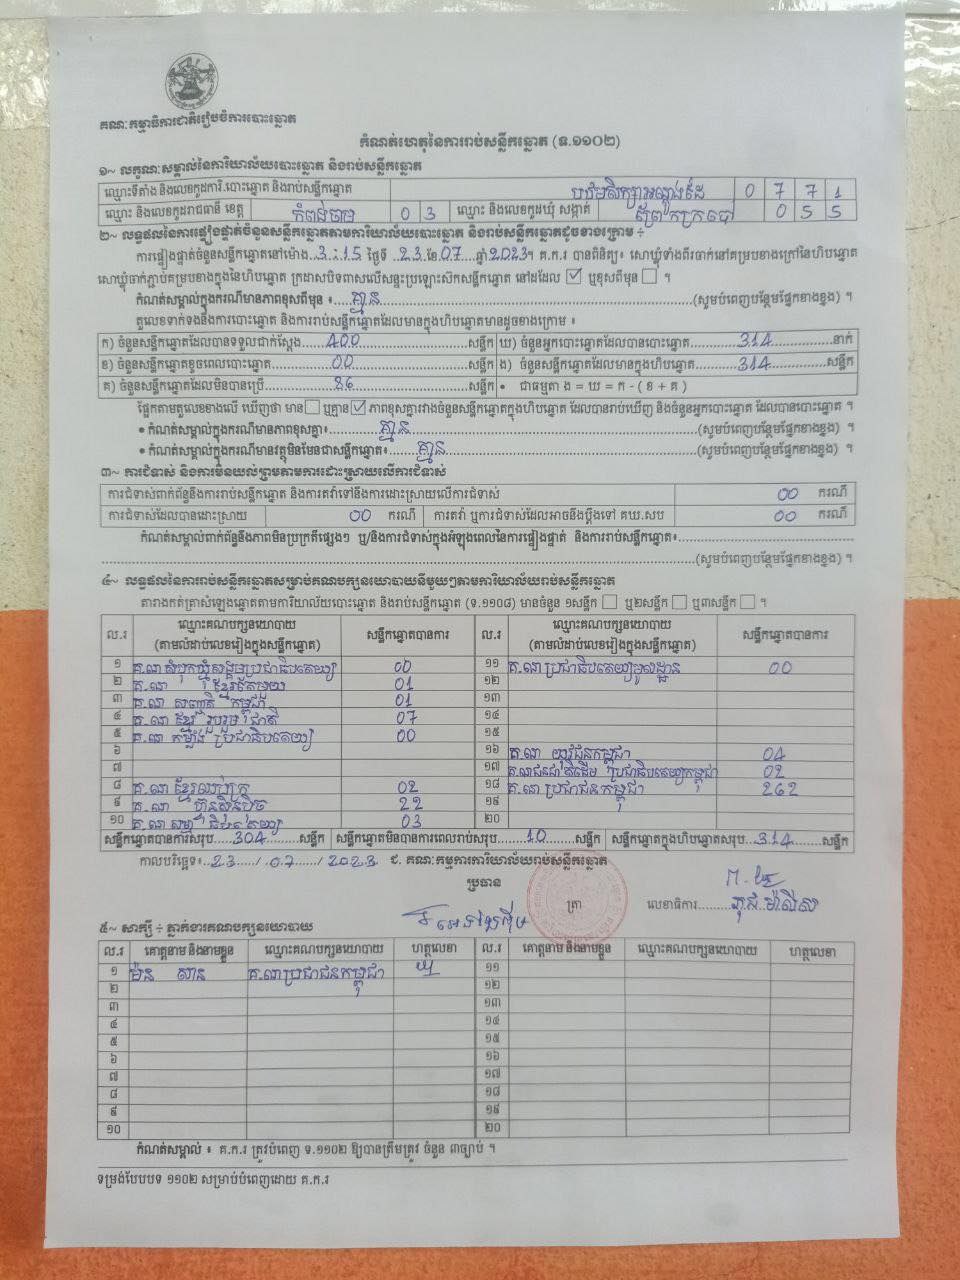 គណៈកម្មាធិការជាតិរៀបចំការបោះឆ្នោត
កំណត់ហេតុនៃការរាប់សន្លឹកឆ្នោត (ទ.១១០២)
១~ លក្ខណៈសម្គាល់នៃការិយាល័យបោះឆ្នោត និងរាប់សន្លឹកឆ្នោត
ឈ្មោះទីតាំង និងលេខកូដការិ.បោះឆ្នោត និងរាប់សន្លឹកឆ្នោត បឋមសិក្សាអណ្តូងដៃ 0 7 7 1
ឈ្មោះ និងលេខកូដរាជធានី ខេត្ត កំពង់ចាម 0 3 ឈ្មោះ និងលេខកូដឃុំ សង្កាត់ ព្រែកក្របៅ 0 5 5
២~ លទ្ធផលនៃការផ្ទៀងផ្ទាត់ចំនួនសន្លឹកឆ្នោតតាមការិយាល័យបោះឆ្នោត និងរាប់សន្លឹកឆ្នោតដូចខាងក្រោម ÷
ការផ្ទៀងផ្ទាត់ចំនួនសន្លឹកឆ្នោតនៅម៉ោង 3:15 ថ្ងៃទី 23 ខែ 07 ឆ្នាំ 2023។ គ.ក.រ បានពិនិត្យ៖ សោឃ្នុំទាំងពីរចាក់នៅគម្របខាងក្រៅនៃហិបឆ្នោត
សោឃ្នុំចាក់ភ្ជាប់គម្របខាងក្នុងនៃហិបឆ្នោត ក្រដាសបិទពាសលើសន្ទះប្រឡោះសឹកសន្លឹកឆ្នោត នៅដដែល ☑ ឬខុសពីមុន ☐ ។
កំណត់សម្គាល់ក្នុងករណីមានភាពខុសពីមុន ៖ គ្មាន (សូមបំពេញបន្ថែមផ្នែកខាងខ្នង) ។
តួលេខទាក់ទងនឹងការបោះឆ្នោត និងការរាប់សន្លឹកឆ្នោតដែលមានក្នុងហិបឆ្នោតមានដូចខាងក្រោម ៖
ក) ចំនួនសន្លឹកឆ្នោតដែលបានទទួលជាក់ស្តែង 400 សន្លឹក ឃ) ចំនួនអ្នកបោះឆ្នោតដែលបានបោះឆ្នោត 314 នាក់
ខ) ចំនួនសន្លឹកឆ្នោតខូចពេលបោះឆ្នោត 00 សន្លឹក ង) ចំនួនសន្លឹកឆ្នោតដែលមានក្នុងហិបឆ្នោត 314 សន្លឹក
គ) ចំនួនសន្លឹកឆ្នោតដែលមិនបានប្រើ 86 សន្លឹក • ជាធម្មតា ង = ឃ = ក - ( ខ + គ )
ផ្អែកតាមតួលេខខាងលើ ឃើញថា មាន ☐ ឬគ្មាន ☑ ភាពខុសគ្នារវាងចំនួនសន្លឹកឆ្នោតក្នុងហិបឆ្នោត ដែលបានរាប់ឃើញ និងចំនួនអ្នកបោះឆ្នោត ដែលបានបោះឆ្នោត ។
• កំណត់សម្គាល់ក្នុងករណីមានភាពខុសគ្នា៖ គ្មាន (សូមបំពេញបន្ថែមផ្នែកខាងខ្នង) ។
• កំណត់សម្គាល់ក្នុងករណីមានវត្ថុមិនមែនជាសន្លឹកឆ្នោត៖ គ្មាន (សូមបំពេញបន្ថែមផ្នែកខាងខ្នង) ។
៣~ ការជំទាស់ និងការមិនយល់ព្រមតាមការដោះស្រាយលើការជំទាស់
ការជំទាស់ពាក់ព័ន្ធនឹងការរាប់សន្លឹកឆ្នោត និងការតវ៉ាទៅនឹងការដោះស្រាយលើការជំទាស់ 00 ករណី
ការជំទាស់ដែលបានដោះស្រាយ 00 ករណី ការតវ៉ា ឬការជំទាស់ដែលអាចនឹងប្តឹងទៅ គឃ.សប 00 ករណី
កំណត់សម្គាល់ពាក់ព័ន្ធនឹងភាពមិនប្រក្រតីផ្សេងៗ ឬ/និងការជំទាស់ក្នុងអំឡុងពេលនៃការផ្ទៀងផ្ទាត់ និងការរាប់សន្លឹកឆ្នោត៖
(សូមបំពេញបន្ថែមផ្នែកខាងខ្នង) ។
៤~ លទ្ធផលនៃការរាប់សន្លឹកឆ្នោតសម្រាប់គណបក្សនយោបាយនីមួយៗតាមការិយាល័យរាប់សន្លឹកឆ្នោត
តារាងកត់ត្រាសំឡេងឆ្នោតតាមការិយាល័យបោះឆ្នោត និងរាប់សន្លឹកឆ្នោត (ទ.១១០៨) មានចំនួន ១សន្លឹក ☐ ឬ២សន្លឹក ☐ ឬ៣សន្លឹក ☐ ។
ល.រ ឈ្មោះគណបក្សនយោបាយ (តាមលំដាប់លេខរៀងក្នុងសន្លឹកឆ្នោត) សន្លឹកឆ្នោតបានការ ល.រ ឈ្មោះគណបក្សនយោបាយ (តាមលំដាប់លេខរៀងក្នុងសន្លឹកឆ្នោត) សន្លឹកឆ្នោតបានការ
១ គ.ណ សំបុកឃ្មុំសង្គមប្រជាធិបតេយ្យ 00 ១១ គ.ណ ប្រជាធិបតេយ្យមូលដ្ឋាន 00
២ គ.ណ ខ្មែរតែមួយ 01 ១២
៣ គ.ណ សញ្ជាតិ កម្ពុជា 01 ១៣
៤ គ.ណ ខ្មែរ រួបរួម ជាតិ 07 ១៤
៥ គ.ណ កម្លាំង ប្រជាធិបតេយ្យ 00 ១៥
៦ ១៦ គ.ណ យុវជនកម្ពុជា 04
៧ ១៧ គ.ណ ជនជាតិដើម ប្រជាធិបតេយ្យកម្ពុជា 02
៨ គ.ណ ខ្មែរឈប់ក្រ 02 ១៨ គ.ណ ប្រជាជនកម្ពុជា 262
៩ គ.ណ ហ្វ៊ុនស៊ិនប៉ិច 22 ១៩
១០ គ.ណ 03 ២០
សន្លឹកឆ្នោតបានការសរុប 304 សន្លឹក សន្លឹកឆ្នោតមិនបានការពេលរាប់សរុប 10 សន្លឹក សន្លឹកឆ្នោតក្នុងហិបឆ្នោតសរុប 314 សន្លឹក
កាលបរិច្ឆេទ៖ 23 / 07 / 2023 ជ. គណៈកម្មការការិយាល័យរាប់សន្លឹកឆ្នោត
ប្រធាន
ត្រា លេខាធិការ
៥~ សាក្សី ÷ ភ្នាក់ងារគណបក្សនយោបាយ
ល.រ គោត្តនាម និងនាមខ្លួន ឈ្មោះគណបក្សនយោបាយ ហត្ថលេខា ល.រ គោត្តនាម និងនាមខ្លួន ឈ្មោះគណបក្សនយោបាយ ហត្ថលេខា
១ ម៉ន សាន គ.ណ ប្រជាជនកម្ពុជា ១១
២ ១២
៣ ១៣
៤ ១៤
៥ ១៥
៦ ១៦
៧ ១៧
៨ ១៨
៩ ១៩
១០ ២០
កំណត់សម្គាល់ ៖ គ.ក.រ ត្រូវបំពេញ ទ.១១០២ ឱ្យបានត្រឹមត្រូវ ចំនួន ៣ច្បាប់ ។
ទម្រង់បែបបទ ១១០២ សម្រាប់បំពេញដោយ គ.ក.រ